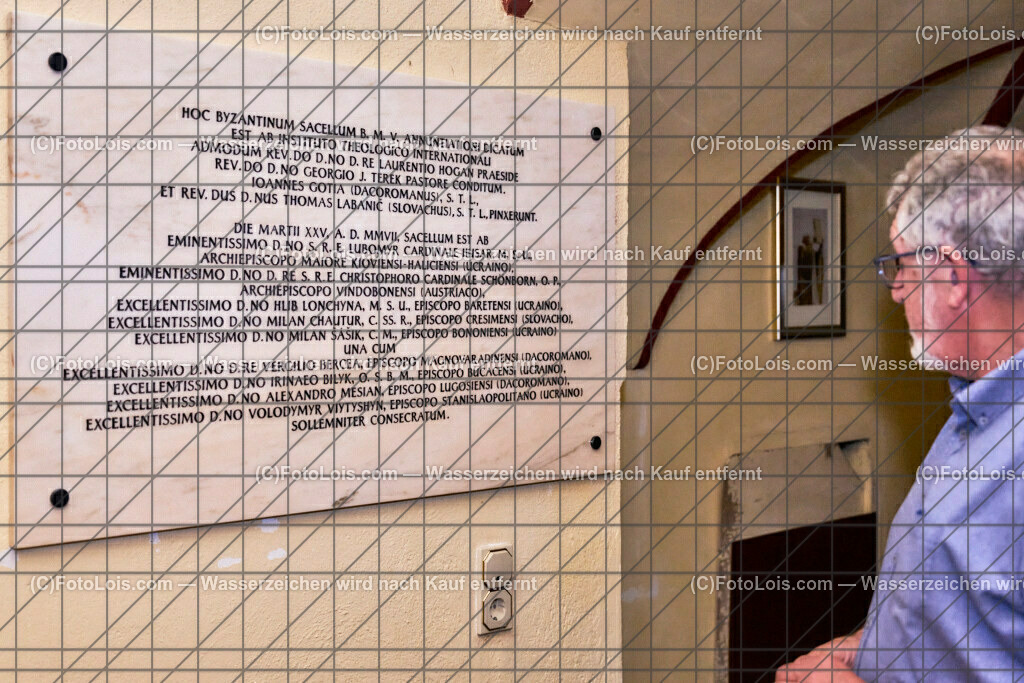 HOC BYZANTINUM SACELLUM B. M. V. ANNUNTIATIONI DICATUM
EST AB INSTITUTO THEOLOGICO INTERNATIONALI
ADMODUM REV.DO D.NO D. RE LAURENTIO HOGAN PRAESIDE
REV.DO D.NO GEORGIO J. TEREK PASTORE CONDITUM.
IOANNES GOTIA (DACOROMANUS), S. T. L.,
ET REV. DUS D. NUS THOMAS LABANIČ (SLOVACHUS), S. T. L., PINXERUNT.
DIE MARTII XXV, A. D. MMVII, SACELLUM EST AB
EMINENTISSIMO D.NO S. R. E. LUBOMYR CARDINALE
ARCHIEPISCOPO MAIORE KIOVIENSI-HALICIENSI (UCRAINO),
EMINENTISSIMO D.NO D. RE S. R. E. CHRISTOPHORO CARDINALE SCHÖNBORN, O. P.,
ARCHIEPISCOPO VINDOBONENSI (AUSTRIACO),
EXCELLENTISSIMO D.NO HLIB LONCHYNA, M. S. U., EPISCOPO BARETENSI (UCRAINO),
EXCELLENTISSIMO D.NO MILAN CHAUTUR, C. SS. R., EPISCOPO CRESIMENSI (SLOVACHO),
EXCELLENTISSIMO D.NO MILAN ŠÁŠIK, C. M., EPISCOPO BONONIENSI (UCRAINO)
UNA CUM
EXCELLENTISSIMO D.NO D.RE VERGILIO BERCEA, EPISCOPO MAGNOVARADINENSI (DACOROMANO),
EXCELLENTISSIMO D.NO IRINAEO BILYK, O. S. B. M., EPISCOPO BUCACENSI (UCRAINO),
EXCELLENTISSIMO D.NO ALEXANDRO MESIAN, EPISCOPO LUGOSIENSI (DACOROMANO),
EXCELLENTISSIMO D.NO VOLODYMYR VIYTYSHYN, EPISCOPO STANISLAOPOLITANO (UCRAINO)
SOLLEMNITER CONSECRATUM.
(C)FotoLois.com — Wasserzeichen wird nach Kauf entfernt
(C)FotoLois.com
(C)FotoLois.com — Wasserzeichen wird nach Kauf entfernt
(C)FotoLois.com — Wasserzeichen wird nach Kauf entfernt
(C)FotoLois.com — Wasserzeichen wird nach Kauf entfernt
(C)FotoLois.com
(C)FotoLois.com — Wasserzeichen wird nach Kauf entfernt
(C)FotoLois.com — Wasserzeichen wird nach Kauf entfernt
(C)FotoLois.com — Wasserzeichen wird nach Kauf entfernt
(C)FotoLois.com
(C)FotoLois.com — Wasserzeichen wird nach Kauf entfernt
(C)FotoLois.com — Wasserzeichen wird nach Kauf entfernt